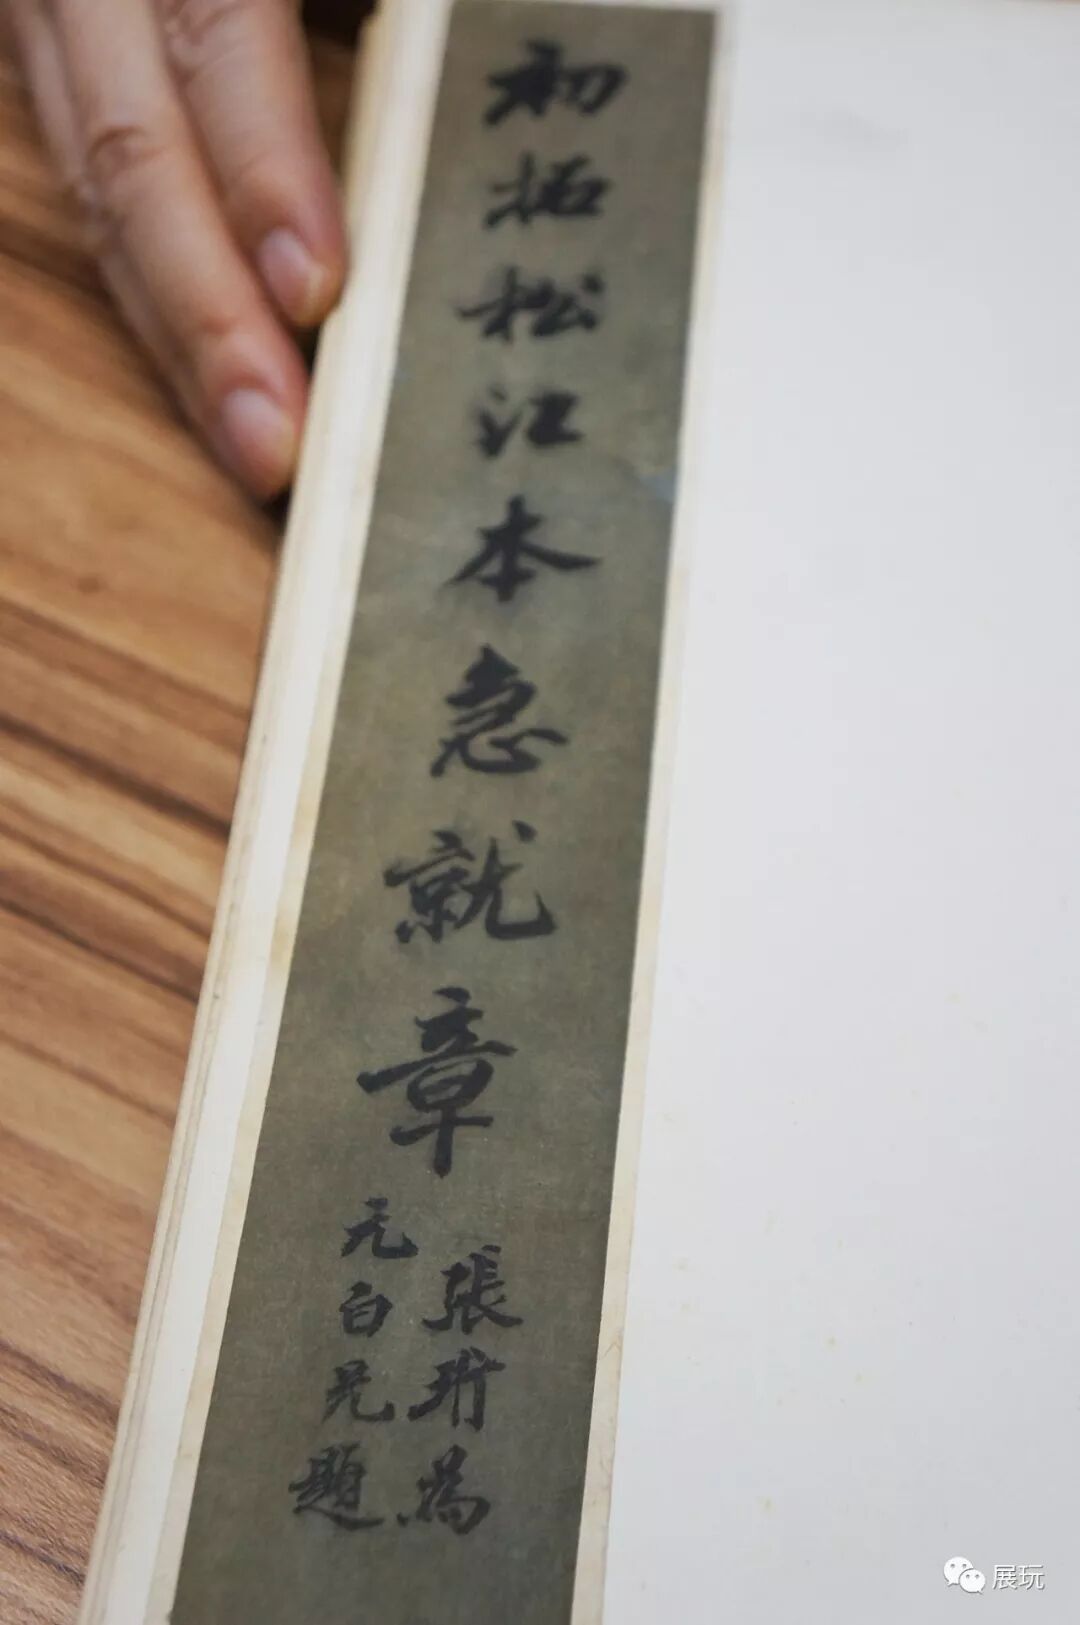 初拓松江本急就章
張珩為
元白兄題
展玩